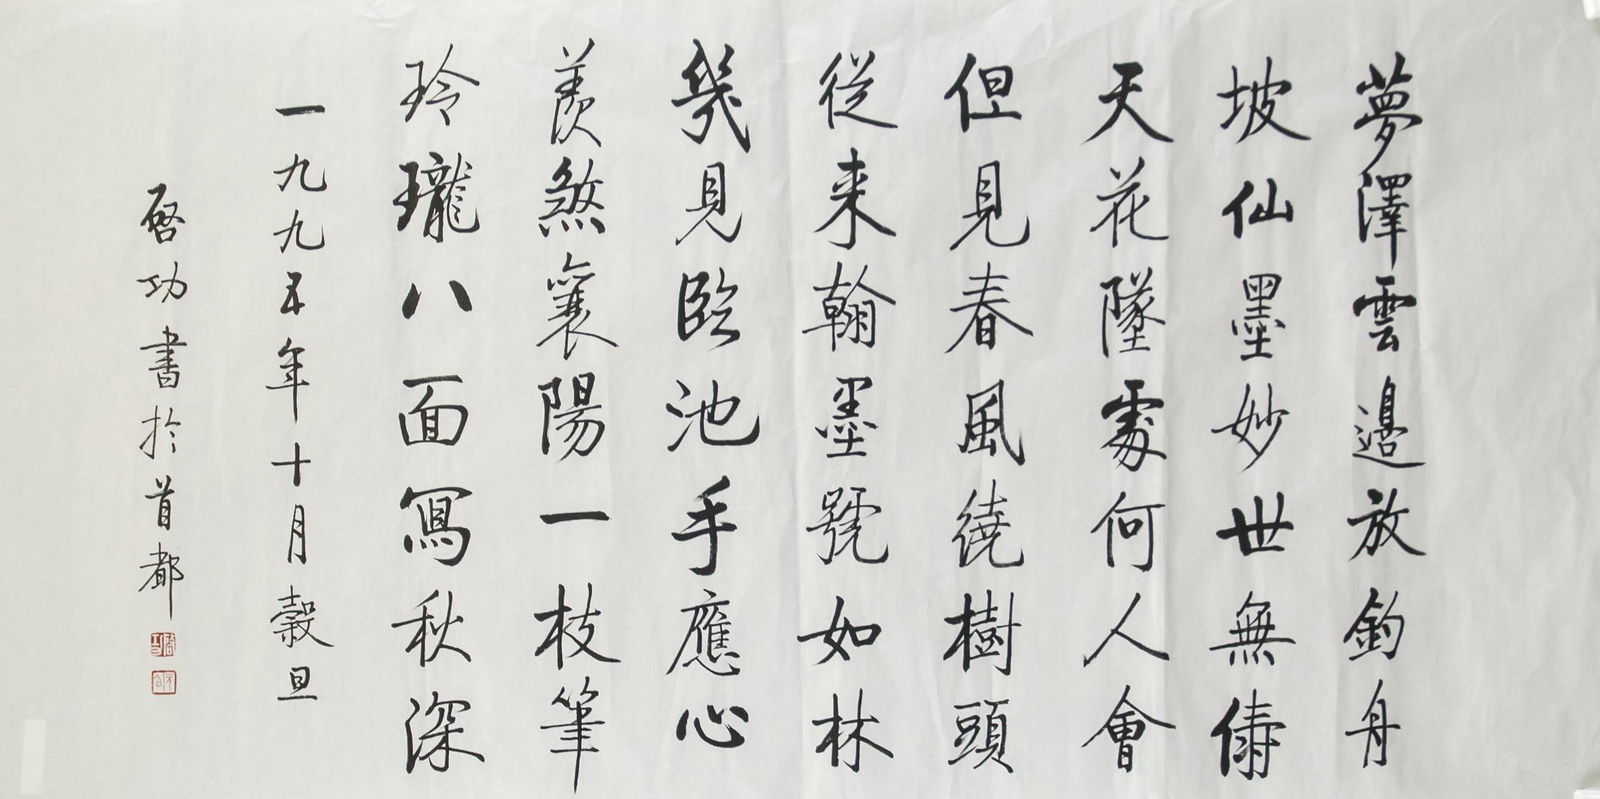 夢澤雲邊放釣舟
坡仙墨妙世無儔
天花墜處何人會
但見春風繞樹頭
從來翰墨號如林
幾見臨池手應心
羨煞襄陽一枝筆
玲瓏八面寫秋深
一九九五年十月穀旦
啓功書於首都